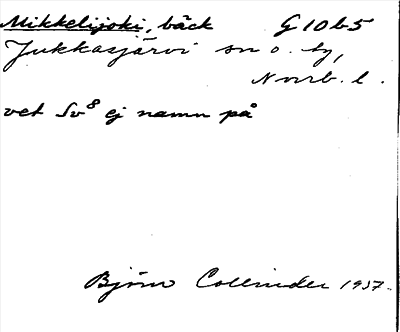 Mikkelijoki, bäck G 10 b 5
Jukkasjärvi sn o. tg,
Norrb. l.
vet Sv8 ej namn på
Björn Collinder 1937.